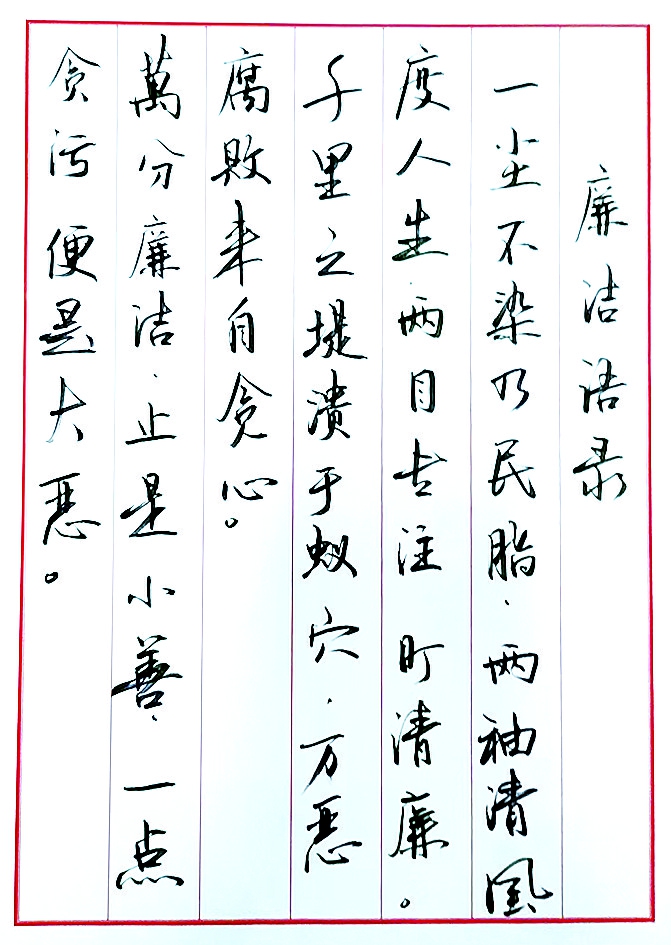 廉洁语录
一尘不染乃民脂，两袖清風
度人生，两目专注盯清廉。
千里之堤溃于蚁穴，万恶
腐败来自贪心。
萬分廉洁，止是小善，一点
贪污便是大恶。